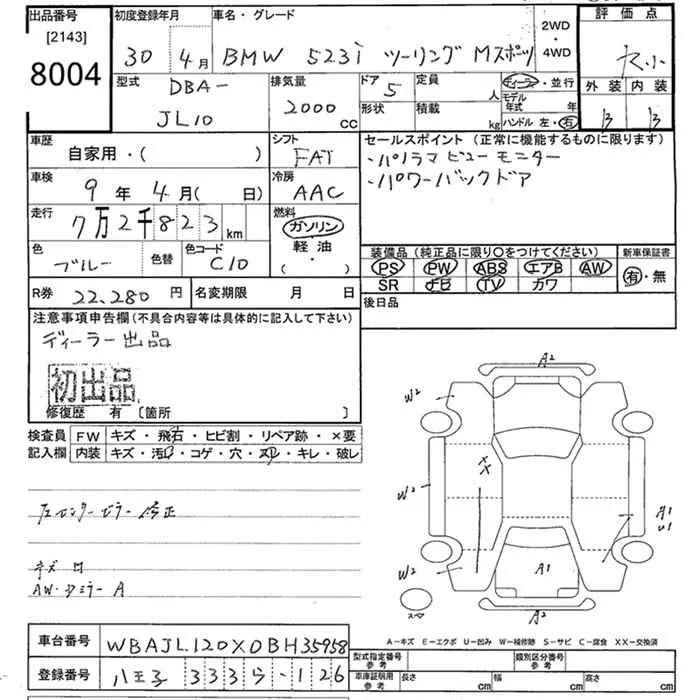 出品番号
[2143]
8004
初度登録年月
30年 4月
車名・グレード
BMW 523i ツーリング Mスポーツ
2WD
・
4WD
評価点
外装 内装
B B
型式
DBA-
JL10
排気量
2000
CC
ドア
5
定員
人
形状
積載
kg
ディーラー・並行
モデル
年式 年
ハンドル 左・右
車歴
自家用・( )
シフト
FAT
車検
9年 4月( 日)
冷房
AAC
走行
7万2千823
km
燃料
ガソリン
・
軽油
・
( )
色
ブルー
色替
色コード
C10
R券
22,280 円
名変期限 月 日
セールスポイント(正常に機能するものに限ります)
・パノラマビューモニター
・パワーバックドア
装備品(純正品に限り○をつけてください)
PS PW ABS エアB AW
SR ナビ TV カワ
新車保証書
有・無
後日品
注意事項申告欄(不具合内容等は具体的に記入して下さい)
ディーラー出品
初出品
修復歴 有 〔箇所 〕
検査員
記入欄
FW キズ・飛石・ヒビ割・リペア跡・×要
内装 キズ・汚れ・コゲ・穴・スレ・キレ・破レ
左センターピラー修正
キズ凹
AW・ドミラーA
A2
W2
XX
W2
A1
U1
W2
A1
スペア
A2
A-キズ E-エクボ U-凹み W-補修跡 S-サビ C-腐食 XX-交換済
車台番号
WBAJL120X0BH35958
登録番号
八王子 333 ら-126
型式指定番号
参考
類別区分番号
参考
車庫証明用
参考
長さ cm
幅 cm
高さ cm